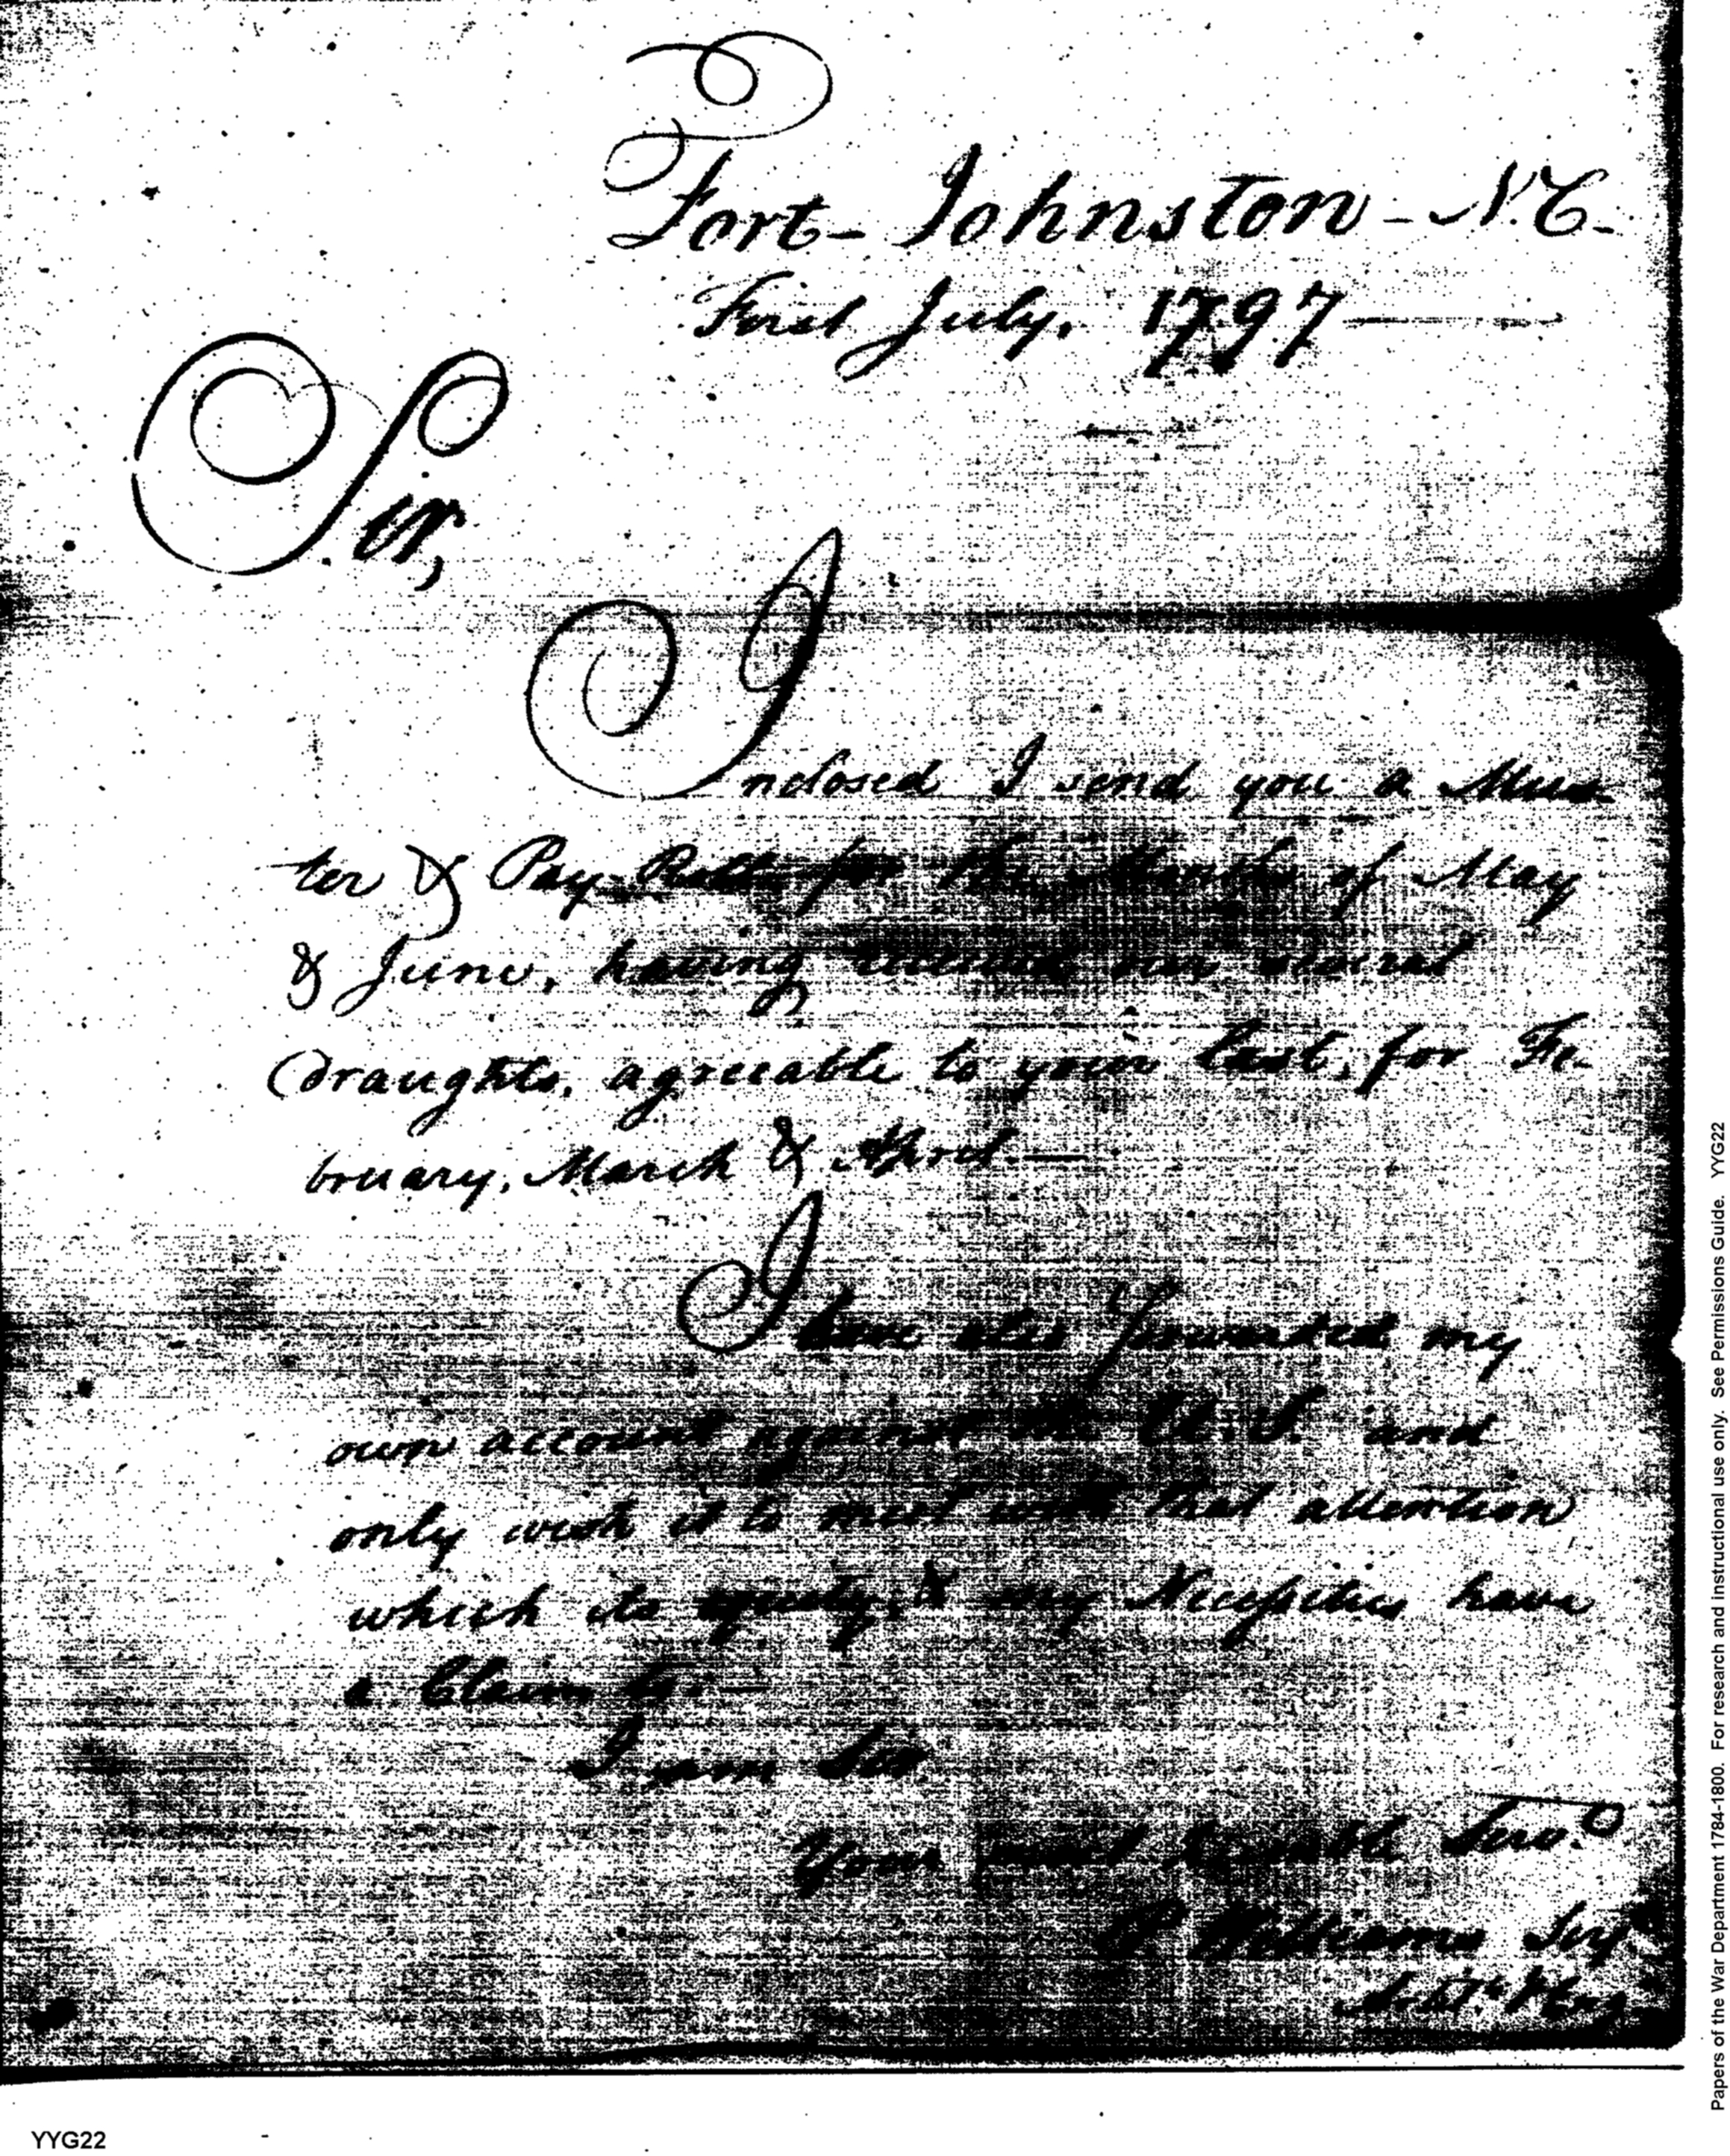 Fort- Johnston - N.C.
First July, 1797
Sir,
Inclosed I send you a Mus-
ter & Pay Rolls for the Months of May
& June, having received our several
Draughts, agreeable to your last, for Fe-
bruary, March & April.—
I have also forwarded my
own account against the U.S. and
only wish it to meet with that attention
which its equity, & my Necessities have
a Claim to.—
I am Sir
Your most humble Serv.
P Williams Serj
Papers of the War Department 1784-1800. For research and instructional use only. See Permissions Guide. YYG22
YYG22